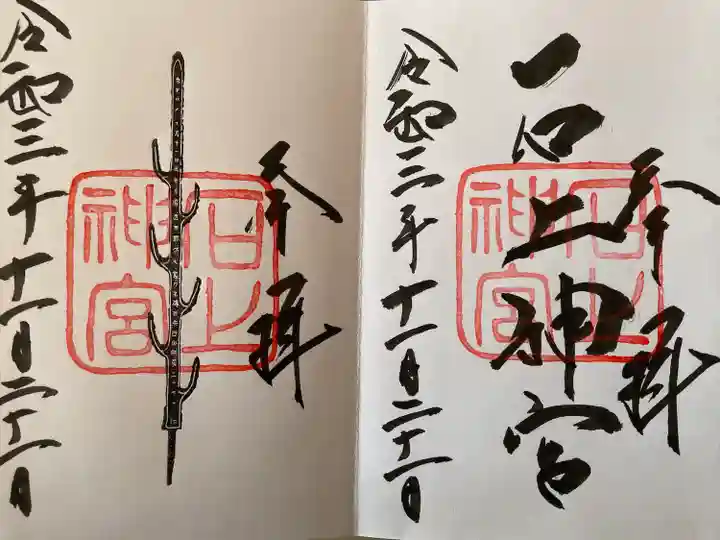 奉拝
石上神宮
石上
神宮
令和三年十一月二十一日
奉拝
石上
神宮
令和三年十一月二十一日